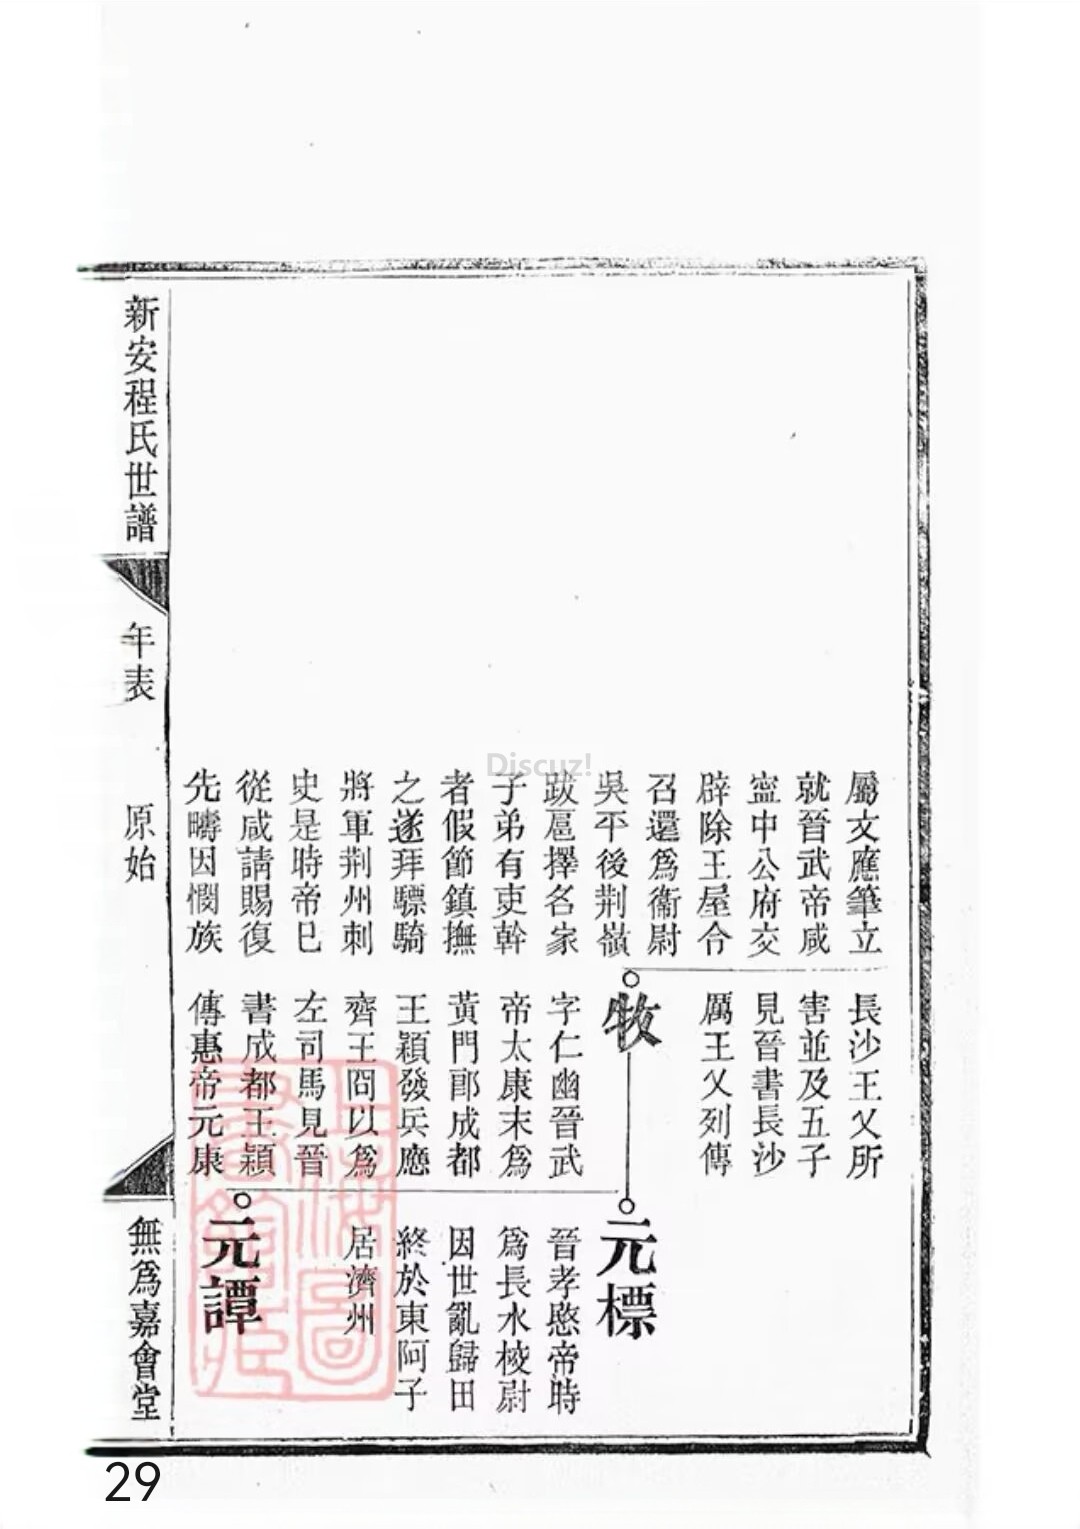 屬文應筆立
就晉武帝咸
寍中公府交
辟除王屋令
召還爲衞尉
吳平後荆嶺
跋扈擇名家
子弟有吏幹
者假節鎮撫
之遂拜驃騎
將軍荆州刺
史是時帝巳
從咸請賜復
先疇因憫族
長沙王乂所
害並及五子
見晉書長沙
厲王乂列傳
牧
字仁幽晉武
帝太康末爲
黃門郎成都
王穎發兵應
齊王冏以爲
左司馬見晉
書成都王穎
傳惠帝元康
元標
晉孝愍帝時
爲長水校尉
因世亂歸田
終於東阿子
居濟州
元譚
新安程氏世譜
年表
原始
無爲嘉會堂
上海圖
書館藏
Discuz!
29